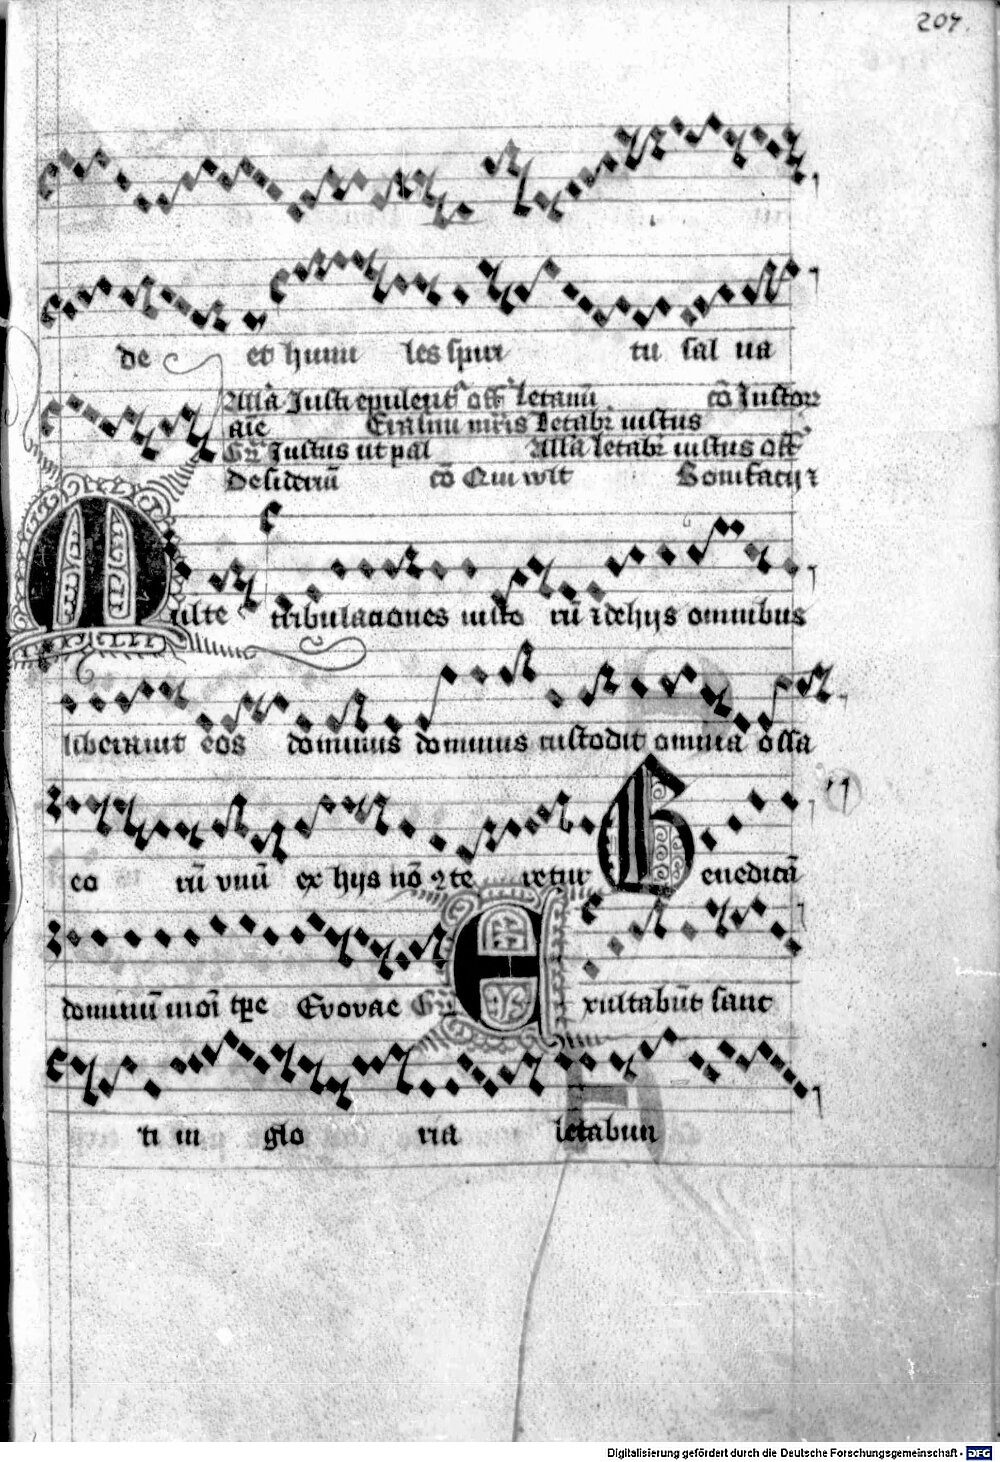 207.
de et humi les spiri tu sal ua
Alla Justi epulent᷑ off̄ letamī cō Justorꝝ
aīe Erasmi mr̄is Letabr̄ iustus
Gr̄ Justus ut pal Alla letabr̄ iustus off̄
Desideriū cō Qui wlt Bonifacij ⁊
Multe tribulaciones iusto rū ⁊ de hijs omnibus
liberauit eos dominus dominus custodit omnia ossa
eo rū vnū ex hijs nō ꝯte retur Benedicā
dominū in oī tp̄e Evovae Gr̄ Exultabūt sanc
ti in glo ria letabun
Digitalisierung gefördert durch die Deutsche Forschungsgemeinschaft - DFG